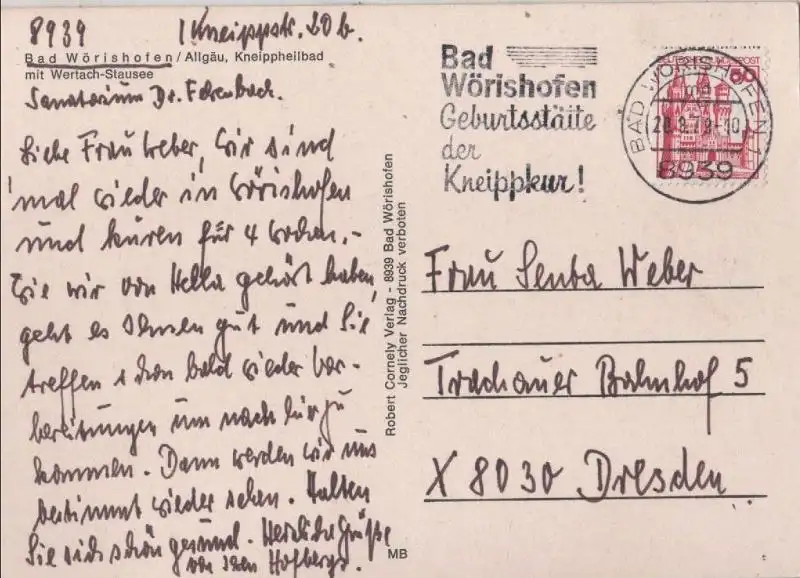 8939 Kneippstr. 20 b.
Bad Wörishofen/Allgäu, Kneippheilbad
mit Wertach-Stausee
Sanatorium Dr.
Liebe Frau Weber, wir sind
'mal wieder in Wörishofen
und kuren für 4 Wochen.-
Wie wir von Hella gehört haben,
geht es Ihnen gut und Sie
treffen schon bald wieder Vor-
bereitungen um nach hier zu
kommen. Dann werden wir uns
bestimmt wieder sehen. Halten
Sie sich schön gesund. Herzliche Grüße
von Ihren Hofbergs.
MB
Robert Cornely Verlag - 8939 Bad Wörishofen
Jeglicher Nachdruck verboten
Bad
Wörishofen
Geburtsstätte
der
Kneippkur!
DEUTSCHE BUNDESPOST
60
BAD WÖRISHOFEN
8939
Frau Senta Weber
Trachauer Bahnhof 5
X 8030 Dresden